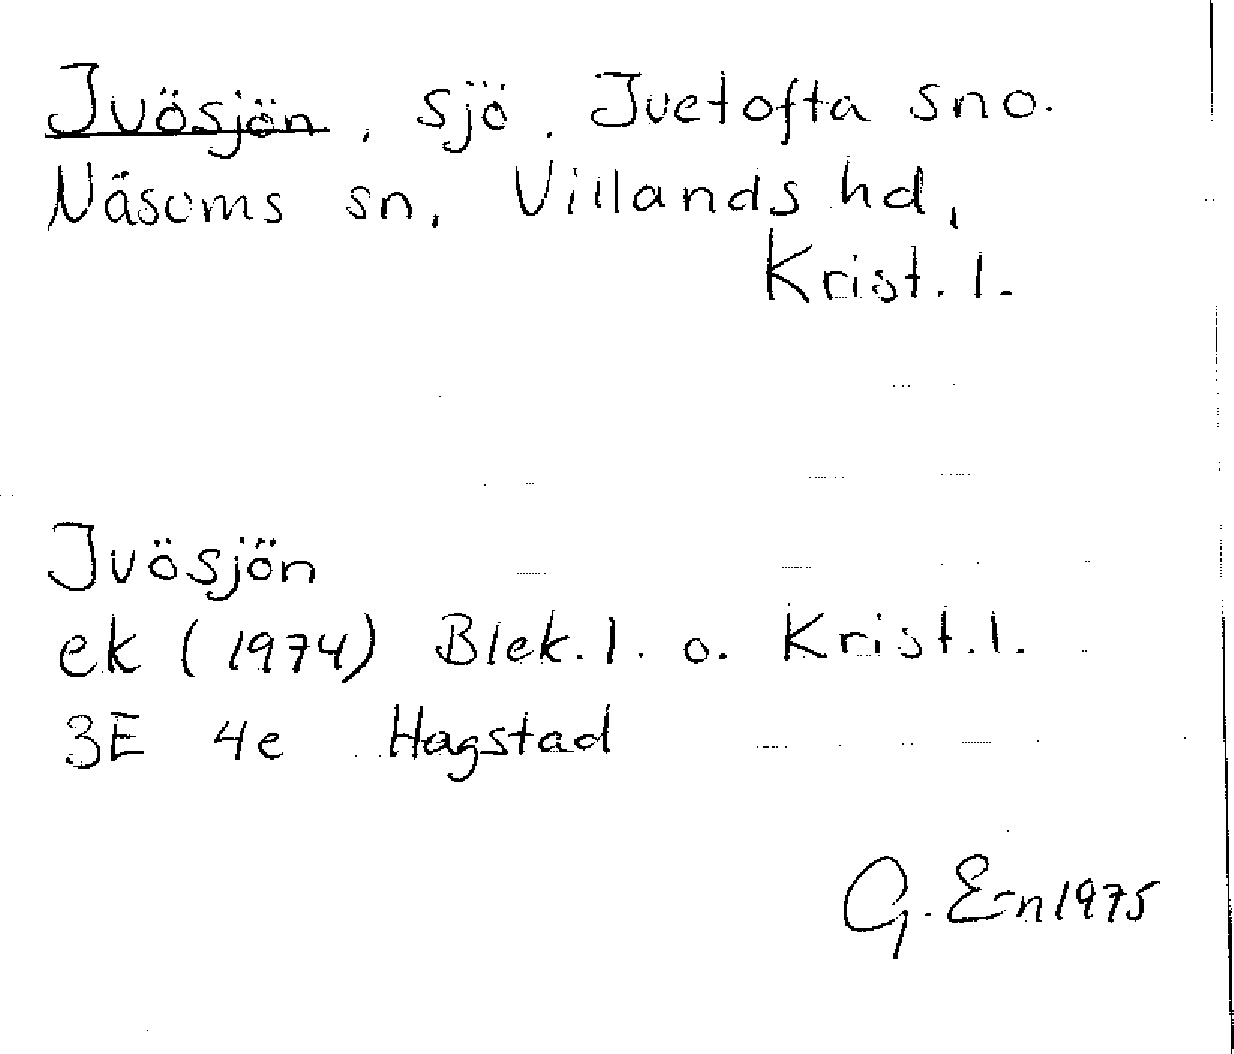 Ivösjön, sjö. Ivetofta sn o.
Näsums sn, Villands hd,
Krist. l.
Ivösjön
ek (1974) Blek. l. o. Krist. l.
3E 4e Hagstad
G. E-n 1975